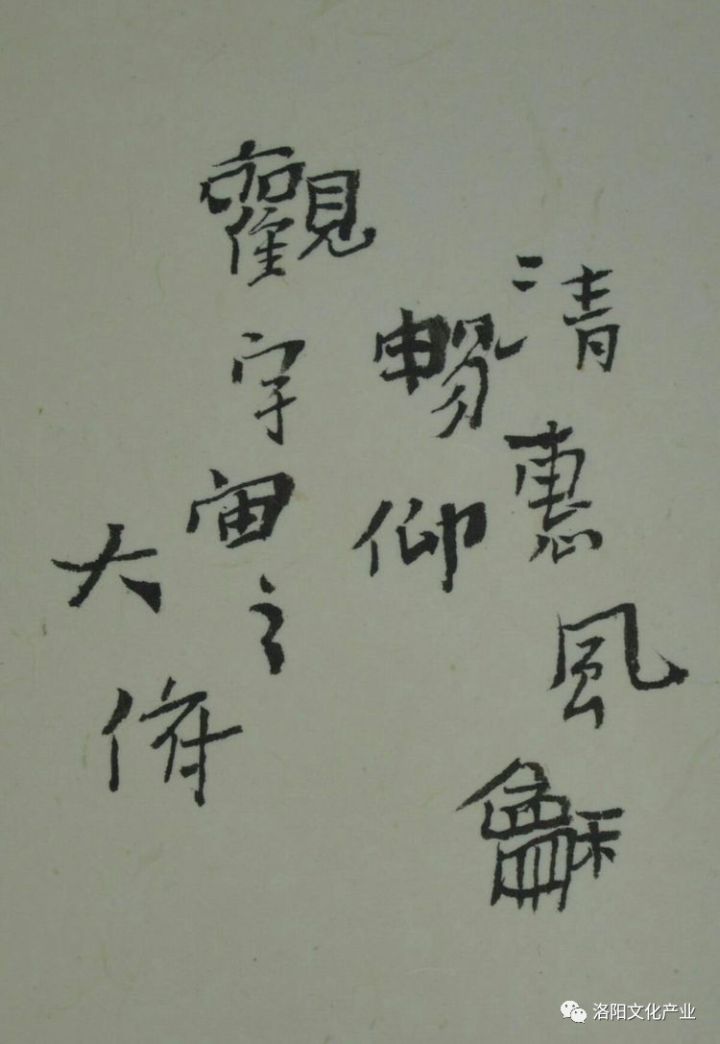 清惠風龢
暢仰
觀宇宙之
大俯
洛阳文化产业